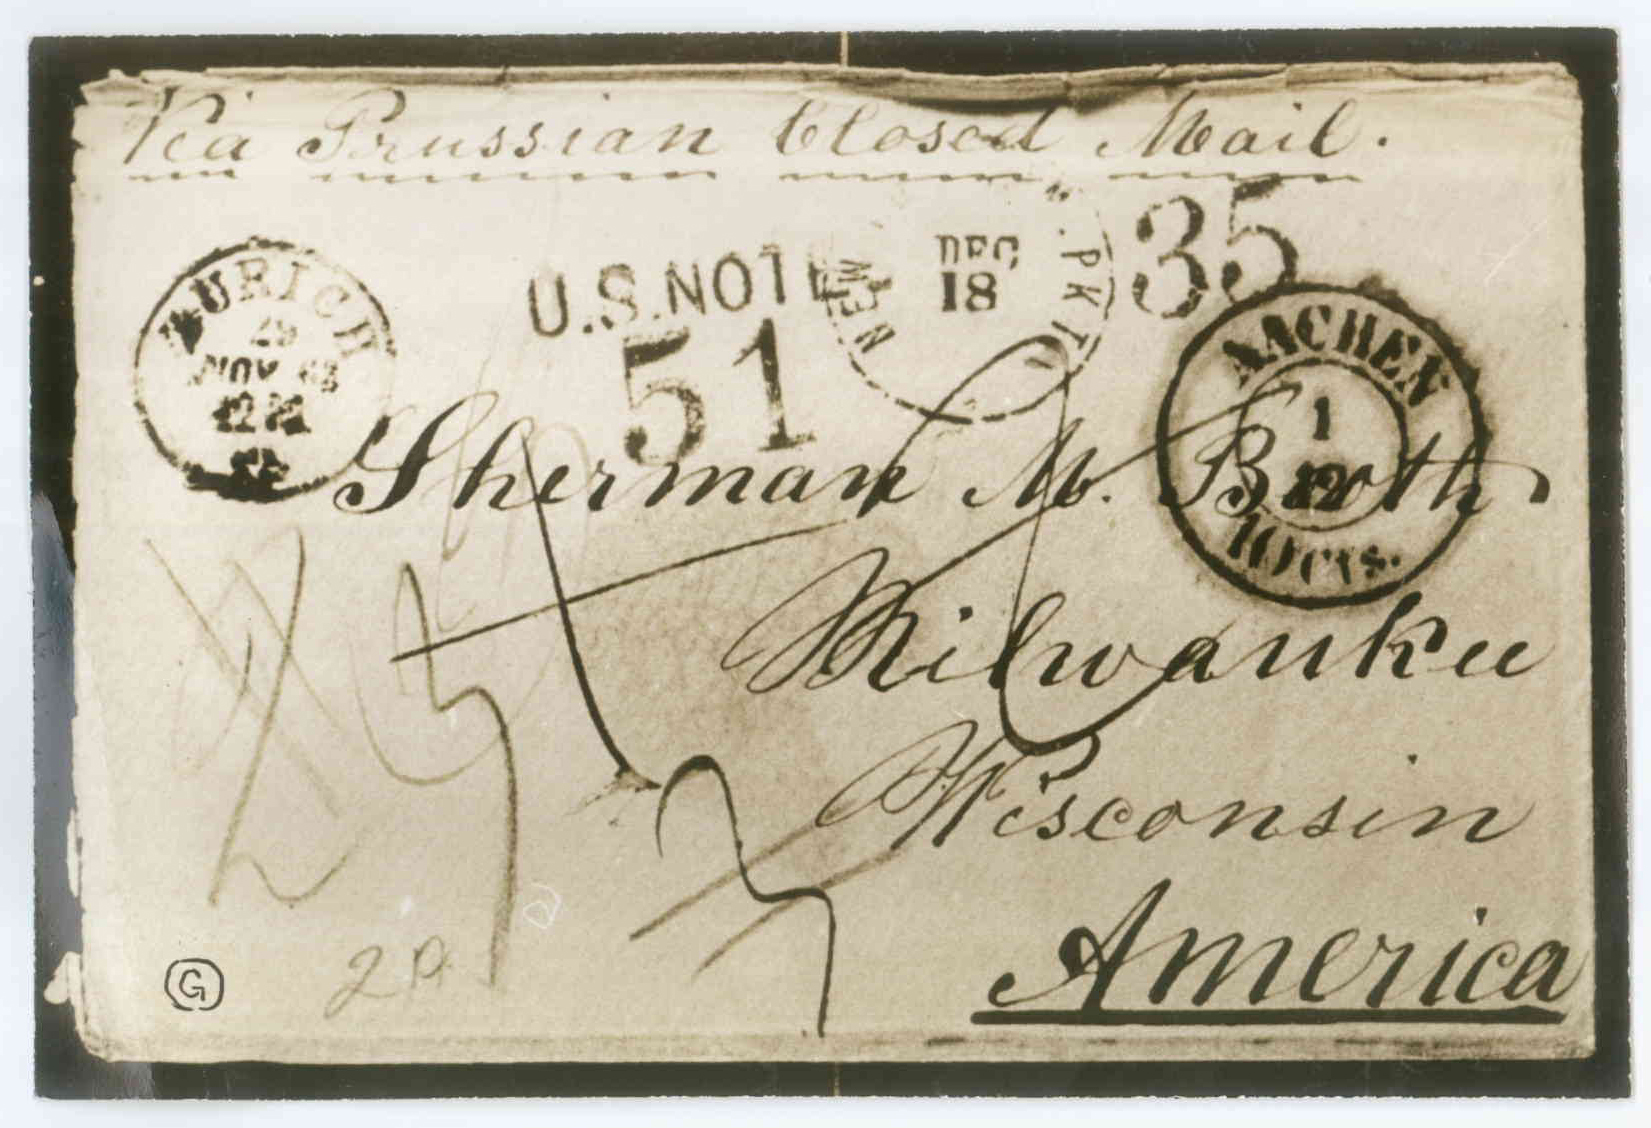 Via Prussian Closed Mail.
ZURICH
29
NOV 63
U.S. NOTE
51
NEW
PKT
DEC
18
35
AACHEN
1
12
10 cts.
Sherman M. Booth
Milwaukee
Wisconsin
America
G